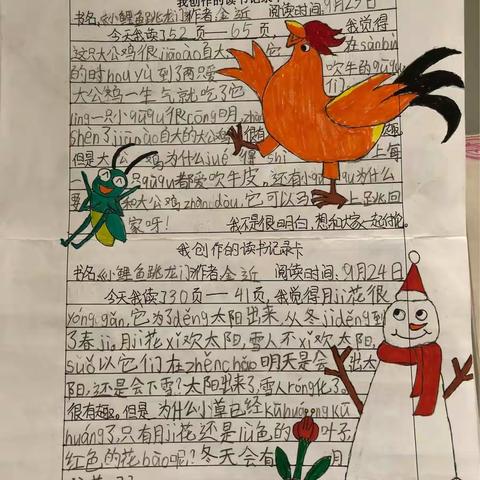 我创作的读书记录卡
书名《小鲤鱼跳龙门》作者金近 阅读时间:9月23日
今天我读了52页—65页, 我觉得
这只大公鸡很jiāoào自大 它 在sànbù
的时hou yù到了两只爱 吹牛的qūqu
大公鸡一生气就吃了它 们
lìng一只小qūqu很cōng明,
shèn了jiāoào自大的大公鸡 很有 趣
但是大公鸡为什么jué de shì 上每
只qūqu都爱吹牛皮,还有小qūqu为什么
要和大公鸡zhàndòu,它可以马 上跳回
家呀! 我不是很明白,想和大家一起讨论。
我创作的读书记录卡
书名《小鲤鱼跳龙门》作者金近 阅读时间:9月24日
今天我读了30页—41页,我觉得月jì花很
yǒng gǎn,它为了děng太阳出来,从冬jìděng到
了春jì,月jì花xǐ欢太阳,雪人不xǐ欢太阳,
suǒ以它们在zhēng chǎo明天是会 出太
阳,还是会下雪?太阳出来了,雪人róng化了。
很有趣。但是为什么小草已经kū huáng
huáng了,只有月jì花还是lǜ色的 叶子,
红色的花bāo呢?冬天会有 月